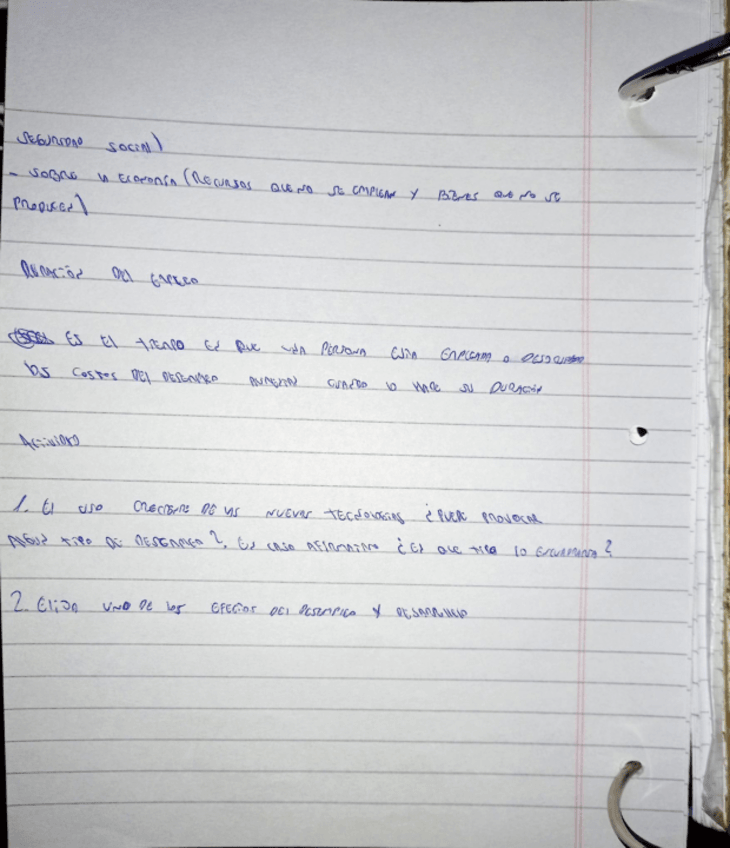 SEGURIDAD SOCIAL)
- SOBRE LA ECONOMÍA (RECURSOS QUE NO SE EMPLEAN Y BIENES QUE NO SE
PRODUCEN)
DURACIÓN DEL EMPLEO
ES EL TIEMPO EN QUE UNA PERSONA ESTÁ EMPLEADA O
LOS COSTOS DEL DESEMPLEO AUMENTAN CUANDO LO HACE SU DURACIÓN
ACTIVIDAD
1. EL USO CRECIENTE DE LAS NUEVAS TECNOLOGIAS ¿PUEDE PROVOCAR
ALGUN TIPO DE DESEMPLEO?. EN CASO AFIRMATIVO ¿EN QUE TIPO LO ENCUADRARIA?
2. ELIJA UNO DE LOS EFECTOS DEL DESEMPLEO Y DESARROLLO